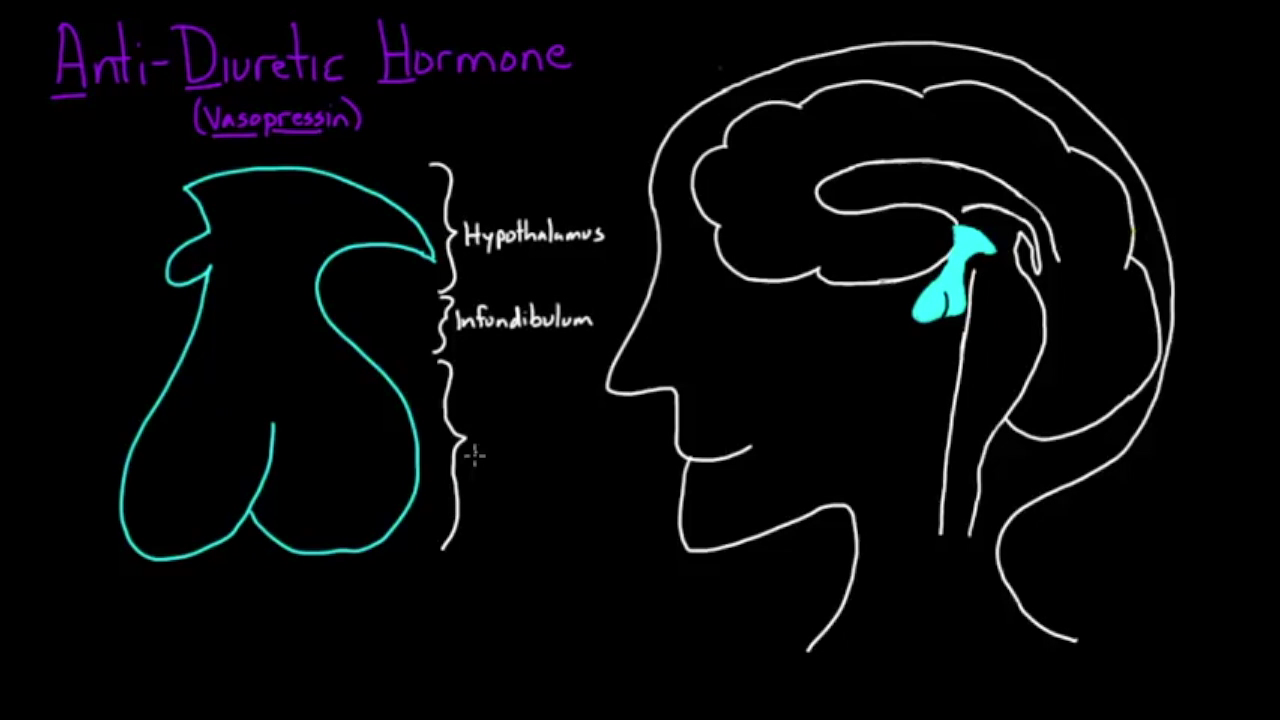 Anti-Diuretic Hormone
(Vasopressin)
Hypothalamus
Infundibulum